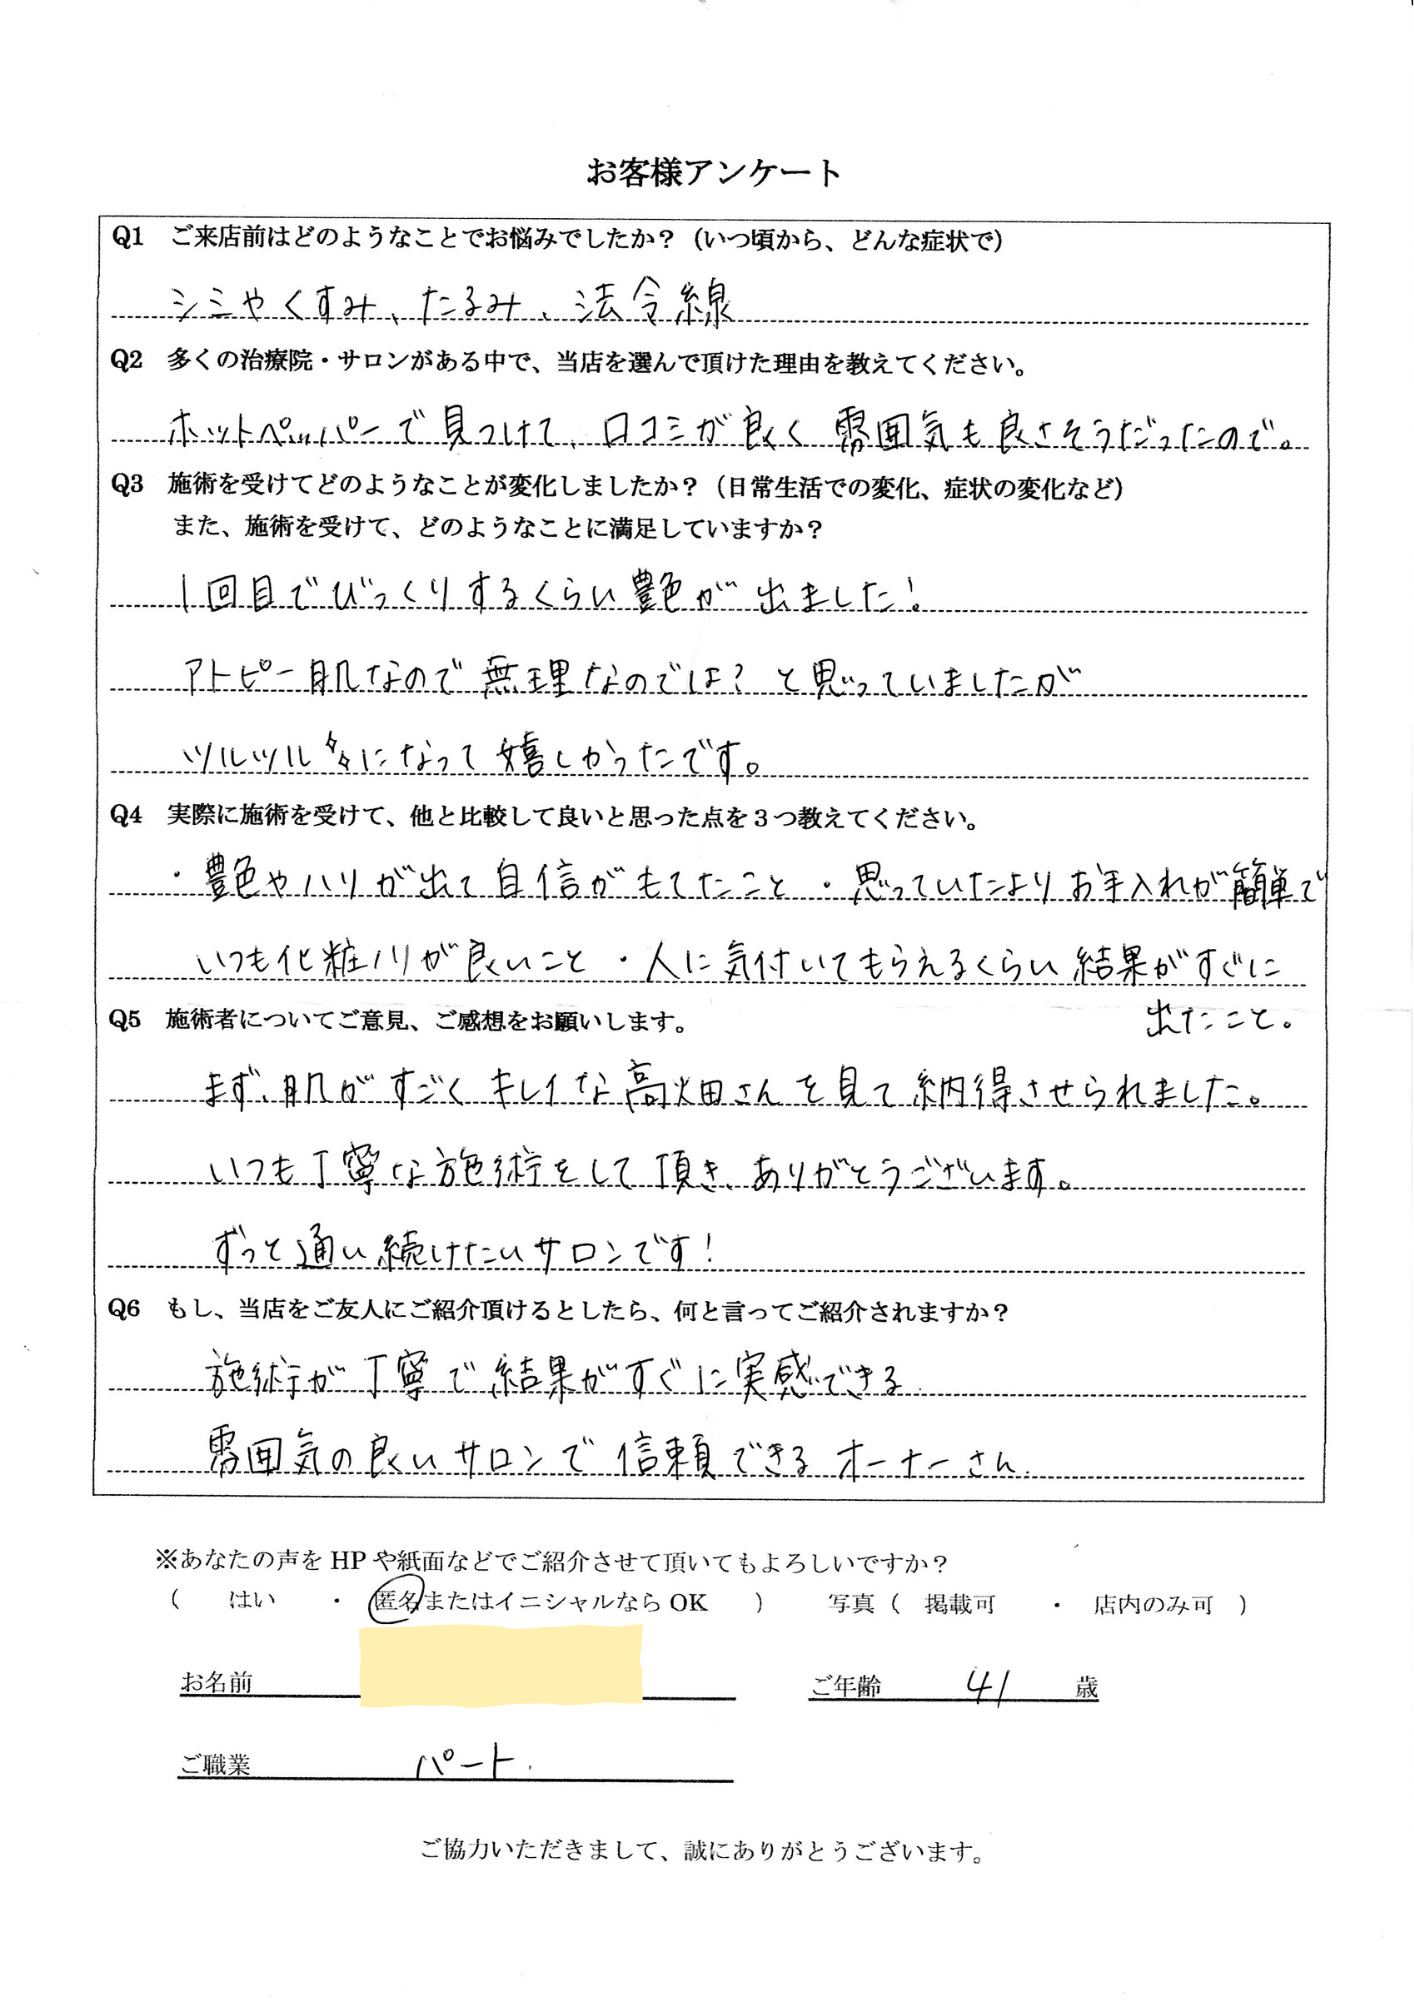 お客様アンケート
Q1 ご来店前はどのようなことでお悩みでしたか？（いつ頃から、どんな症状で）
シミやくすみ、たるみ、法令線
Q2 多くの治療院・サロンがある中で、当店を選んで頂けた理由を教えてください。
ホットペッパーで見つけて、口コミが良く雰囲気も良さそうだったので。
Q3 施術を受けてどのようなことが変化しましたか？（日常生活での変化、症状の変化など）
また、施術を受けて、どのようなことに満足していますか？
1回目でびっくりするくらい艶が出ました！
アトピー肌なので無理なのでは？と思っていましたが
ツルツルになって嬉しかったです。
Q4 実際に施術を受けて、他と比較して良いと思った点を３つ教えてください。
・艶やハリが出て自信がもてたこと・思っていたよりお手入れが簡単で
いつも化粧ノリが良いこと・人に気付いてもらえるくらい結果がすぐに
出たこと。
Q5 施術者についてご意見、ご感想をお願いします。
まず、肌がすごくキレイな高畑さんを見て納得させられました。
いつも丁寧な施術をして頂き、ありがとうございます。
ずっと通い続けたいサロンです！
Q6 もし、当店をご友人にご紹介頂けるとしたら、何と言ってご紹介されますか？
施術が丁寧で結果がすぐに実感できる
雰囲気の良いサロンで信頼できるオーナーさん.
※あなたの声を HP や紙面などでご紹介させて頂いてもよろしいですか？
（ はい ・ 匿名またはイニシャルなら OK ） 写真（ 掲載可 ・ 店内のみ可 ）
お名前 ご年齢 41 歳
ご職業 パート.
ご協力いただきまして、誠にありがとうございます。